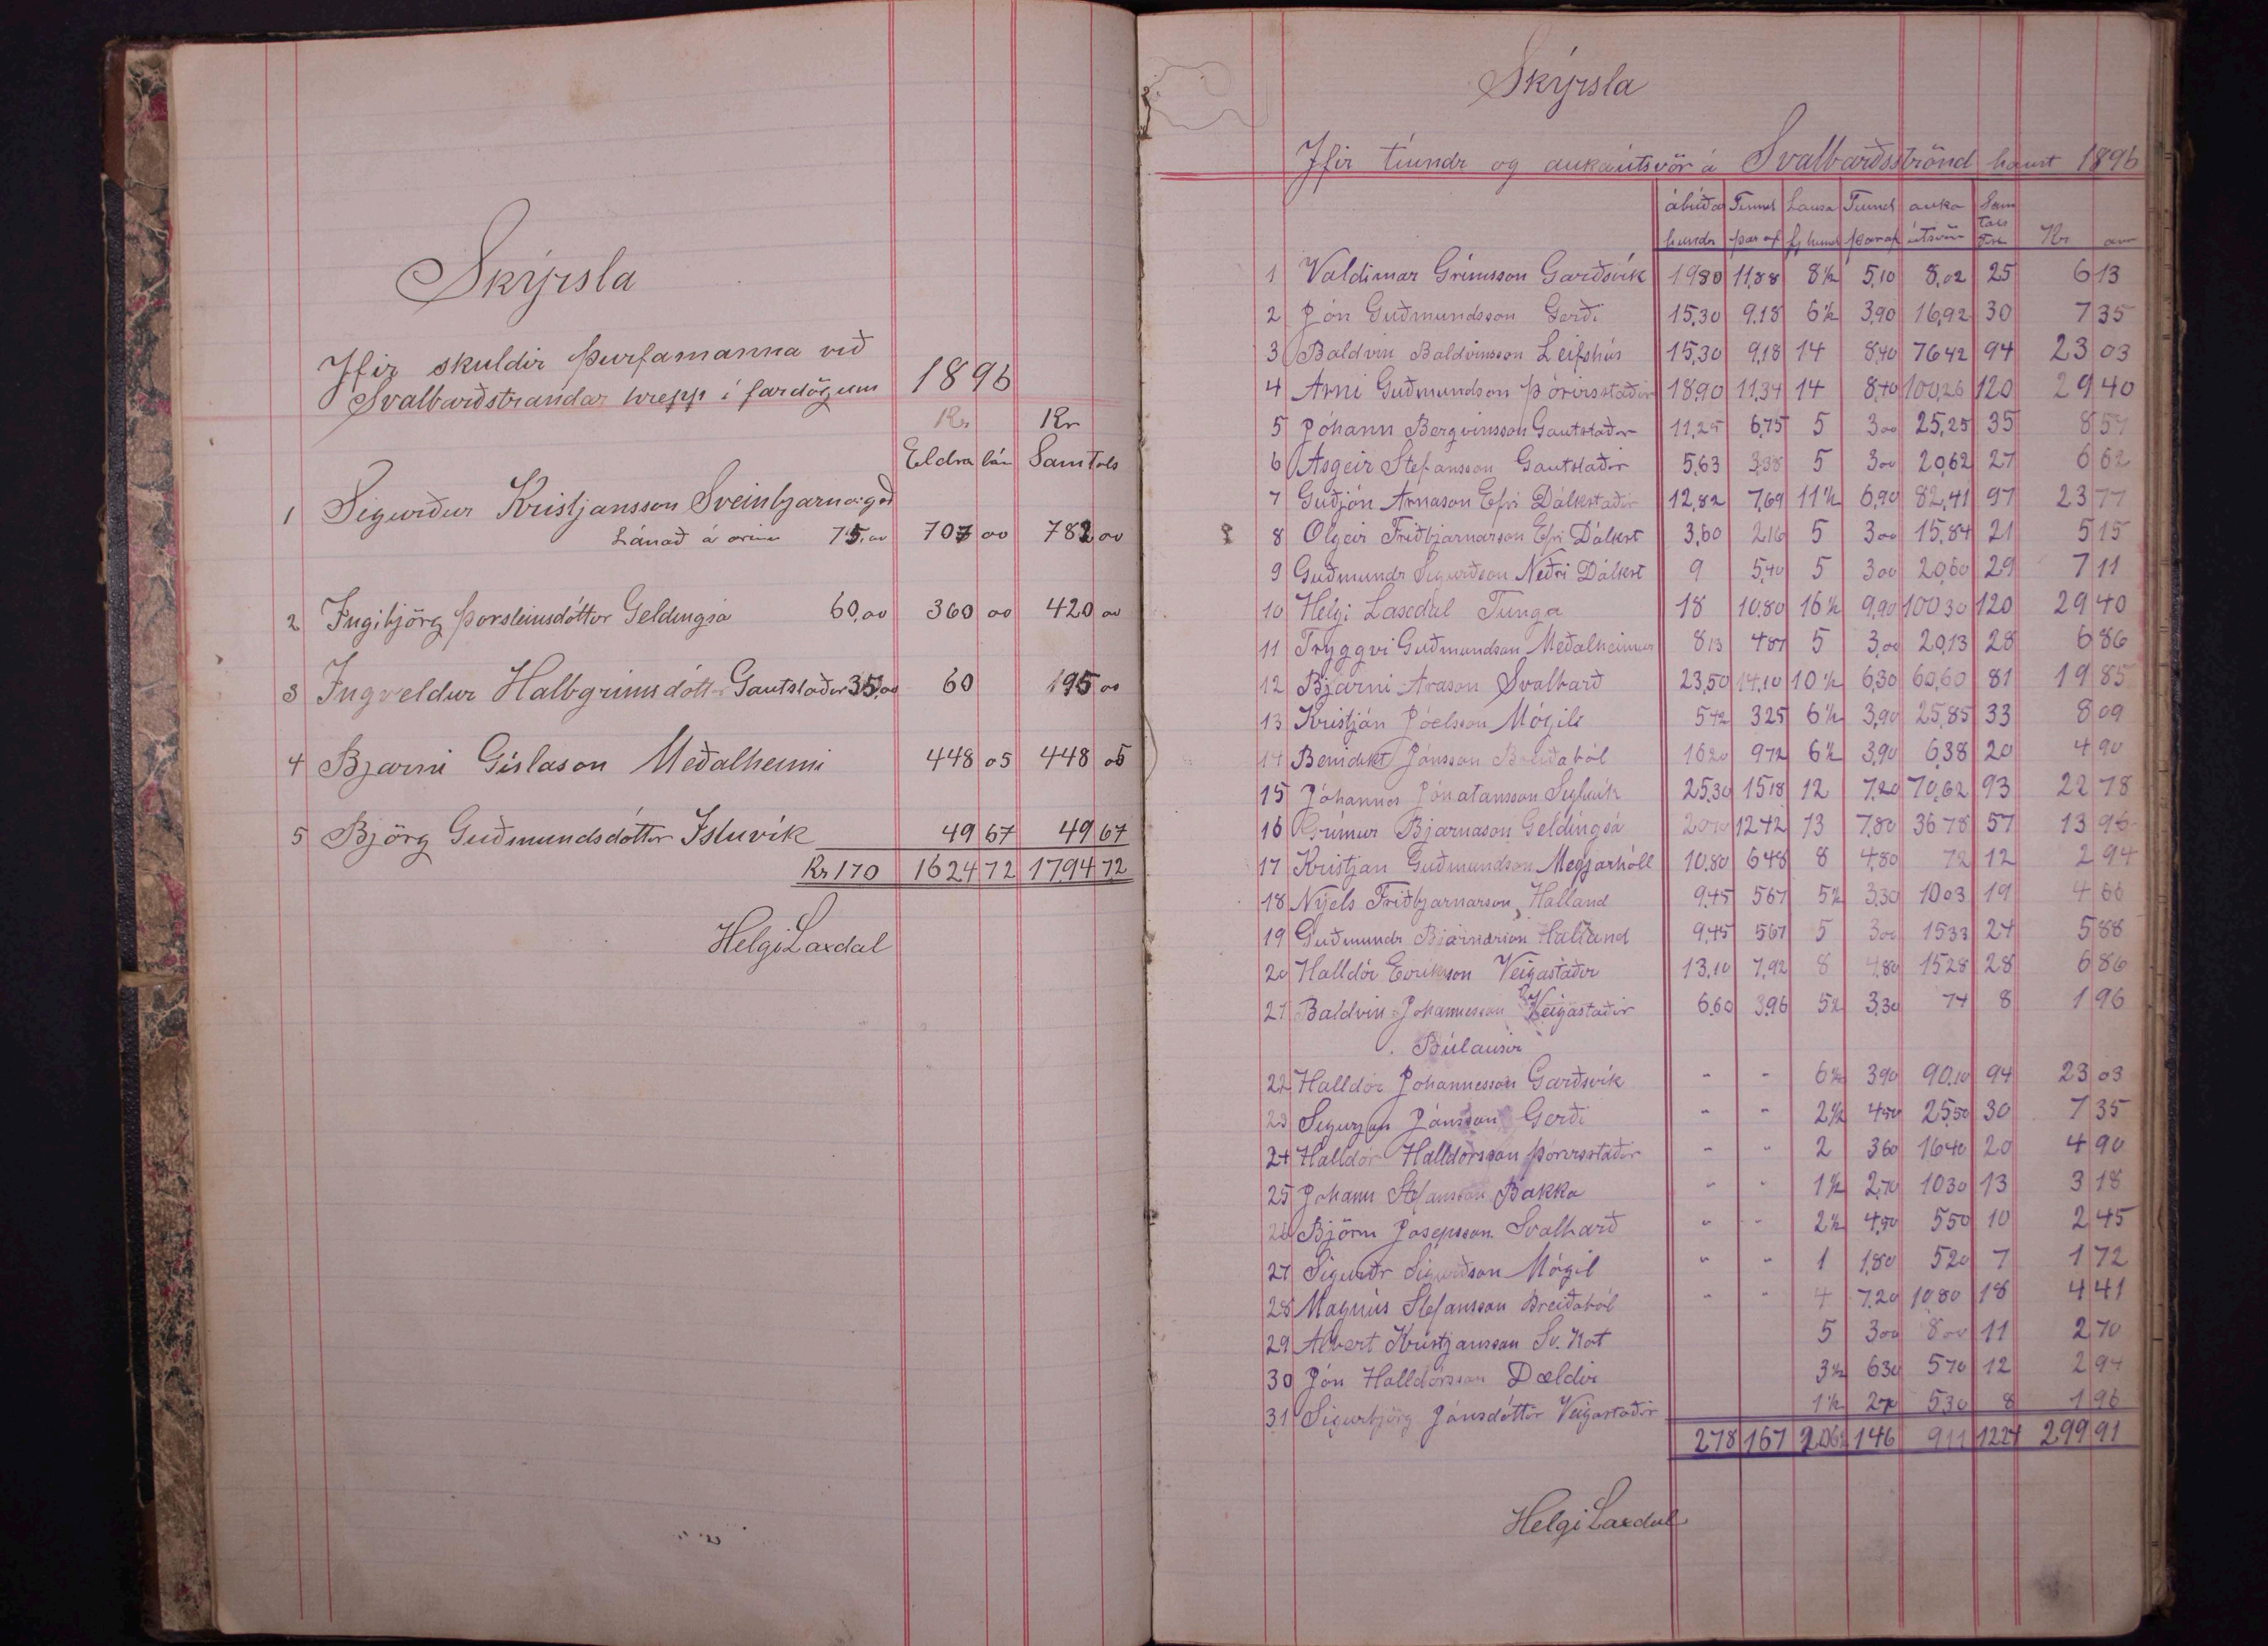 Skýrsla
Ifir skuldir þurfamanna við
Svalbarðstrandar hrepp í fardögum 1896
Kr Kr
Eldra lán Samtals
1 Sigurður Kristjansson Sveinbjarnargerð
Lánað á árinu 75,00 707 00 782 00
2 Ingibjörg Þorsteinsdóttir Geldingsá 60,00 360 00 420 00
3 Ingveldur Hallgrimsdóttir Gautstaðir 35,00 60 95 00
4 Bjarni Gíslason Meðalheimi 448 05 448 05
5 Björg Guðmundsdóttir Ystuvík 49 67 49 67
Kr 170 1624 72 1794 72
Helgi Laxdal
Skýrsla
Ifir tíundr og aukaútsvör á Svalbarðsströnd haust 1896
ábúðar Tíund Lausa Tíund auka Sam
hundr þar af fj hund þar af útsvör tals Fisk Kr aur
1 Valdimar Grímsson Garðsvík 1980 11,88 8½ 5,10 8,02 25 6 13
2 Jón Guðmundsson Gerði 15,30 9,18 6½ 3,90 16,92 30 7 35
3 Baldvin Baldvinsson Leifshús 15,30 9,18 14 8,40 76 42 94 23 03
4 Arni Guðmundson Þórisstaðir 18,90 11,34 14 8,40 100,26 120 29 40
5 Jóhann Bergvinsson Gautstaðir 11,25 6,75 5 3 00 25,25 35 8 57
6 Asgeir Stefansson Gautstaðir 5,63 3,38 5 3 00 20,62 27 6 62
7 Guðjón Arnason Efri Dálkstaðir 12,82 7,69 11½ 6,90 82,41 97 23 77
8 Olgeir Friðbjarnarson Efri Dálkst 3,60 2,16 5 3 00 15,84 21 5 15
9 Guðmundr Sigurðson Neðri Dálkst 9 5,40 5 3 00 20,60 29 7 11
10 Helgi Laxdal Tunga 18 10.80 16½ 9,90 100 30 120 29 40
11 Tryggvi Guðmundson Meðalheimur 8 13 4 87 5 3,00 20,13 28 6 86
12 Bjarni Arason Svalbarð 23,50 14,10 10½ 6,30 60,60 81 19 85
13 Kristján Jóelsson Mógili 5 42 3 25 6½ 3,90 25,85 33 8 09
14 Benidikt Jónsson Breiðaból 16 20 9 72 6½ 3,90 6,38 20 4 90
15 Jóhannes Jónatansson Sigluvík 25,30 15 18 12 7,20 70,62 93 22 78
16 Grímur Bjarnason Geldingsá 20 70 12 42 13 7,80 36 78 57 13 96
17 Kristjan Guðmundson Megjarhóll 10.80 6 48 8 4,80 72 12 2 94
18 Nýels Friðbjarnarson Halland 9,45 5 67 5½ 3,30 10 03 19 4 66
19 Guðmundr Bjarnarson Halland 9,45 5 67 5 3 00 15 33 24 5 88
20 Halldór Eiríksson Veigastaðir 13,10 7,92 8 4,80 15 28 28 6 86
21 Baldvin Johannesson Veigastaðir 6,60 3,96 5½ 3,30 74 8 1 96
Búlausir
22 Halldór Johannesson Garðsvík - - 6½ 3 90 90,10 94 23 03
23 Sigurjon Jónsson Gerði - - 2½ 4 50 25 50 30 7 35
24 Halldór Halldórsson Þórisstaðir - - 2 3 60 16 40 20 4 90
25 Johann Stefansson Bakka - - 1½ 2,70 10 30 13 3 18
26 Björn Jósepsson Svalbarð - - 2½ 4,50 5 50 10 2 45
27 Sigurðr Sigurðson Mógil - - 1 1,80 5 20 7 1 72
28 Magnús Stefansson Breiðaból - - 4 7.20 10 80 18 4 41
29 Albert Kristjansson Sv. Kot 5 3 00 8 00 11 2 70
30 Jón Halldórsson Dældir 3½ 6 30 5 70 12 2 94
31 Sigurbjörg Jónsdóttir Veigastaðir 1½ 2 70 5 30 8 1 96
278 167 206½ 146 911 1224 299 91
Helgi Laxdal